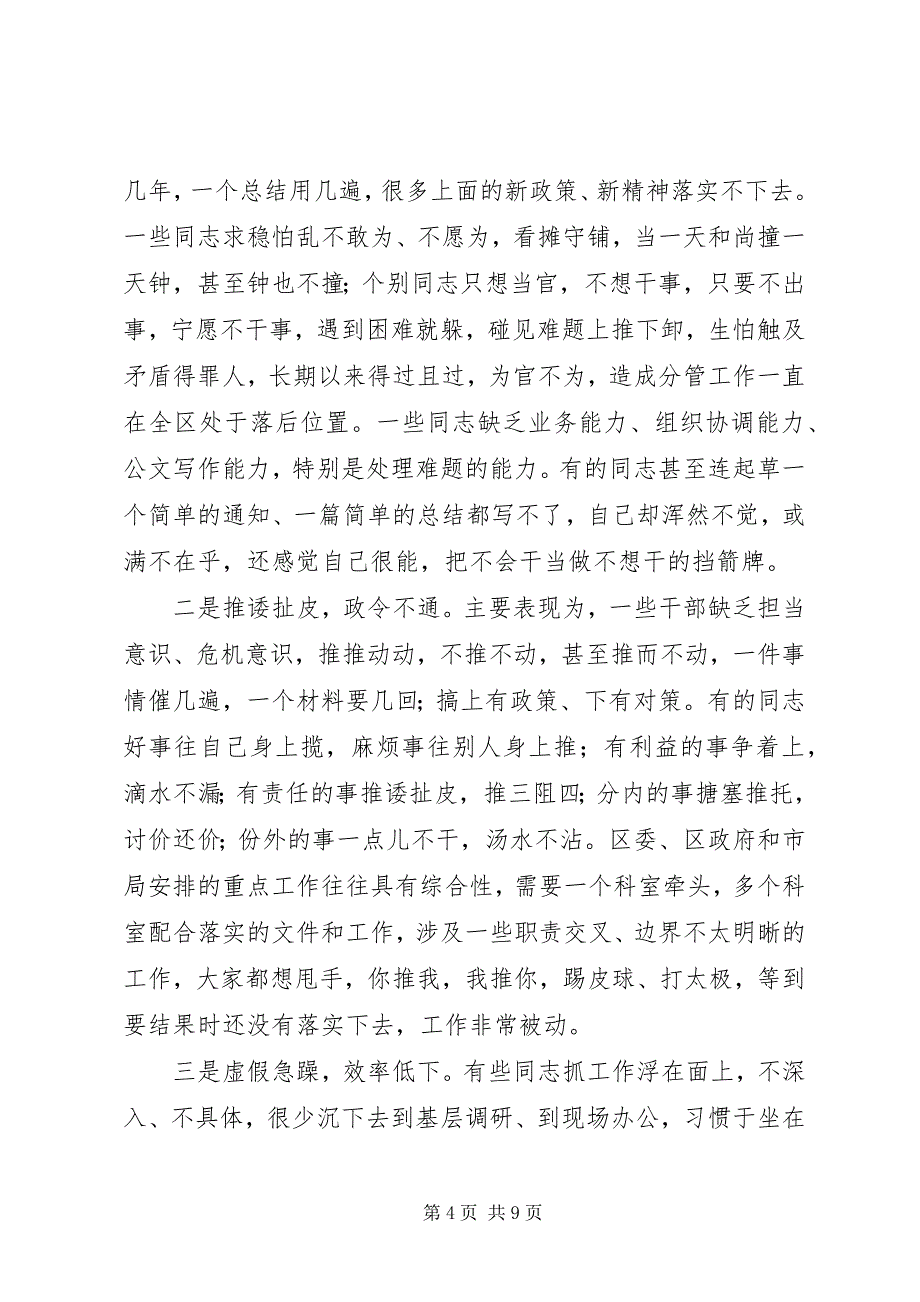 几年，一个总结用几遍，很多上面的新政策、新精神落实不下去。
一些同志求稳怕乱不敢为、不愿为，看摊守铺，当一天和尚撞一
天钟，甚至钟也不撞；个别同志只想当官，不想干事，只要不出
事，宁愿不干事，遇到困难就躲，碰见难题上推下卸，生怕触及
矛盾得罪人，长期以来得过且过，为官不为，造成分管工作一直
在全区处于落后位置。一些同志缺乏业务能力、组织协调能力、
公文写作能力，特别是处理难题的能力。有的同志甚至连起草一
个简单的通知、一篇简单的总结都写不了，自己却浑然不觉，或
满不在乎，还感觉自己很能，把不会干当做不想干的挡箭牌。
二是推诿扯皮，政令不通。主要表现为，一些干部缺乏担当
意识、危机意识，推推动动，不推不动，甚至推而不动，一件事
情催几遍，一个材料要几回；搞上有政策、下有对策。有的同志
好事往自己身上揽，麻烦事往别人身上推；有利益的事争着上，
滴水不漏；有责任的事推诿扯皮，推三阻四；分内的事搪塞推托，
讨价还价；份外的事一点儿不干，汤水不沾。区委、区政府和市
局安排的重点工作往往具有综合性，需要一个科室牵头，多个科
室配合落实的文件和工作，涉及一些职责交叉、边界不太明晰的
工作，大家都想甩手，你推我，我推你，踢皮球、打太极，等到
要结果时还没有落实下去，工作非常被动。
三是虚假急躁，效率低下。有些同志抓工作浮在面上，不深
入、不具体，很少沉下去到基层调研、到现场办公，习惯于坐在
第 4 页 共 9 页